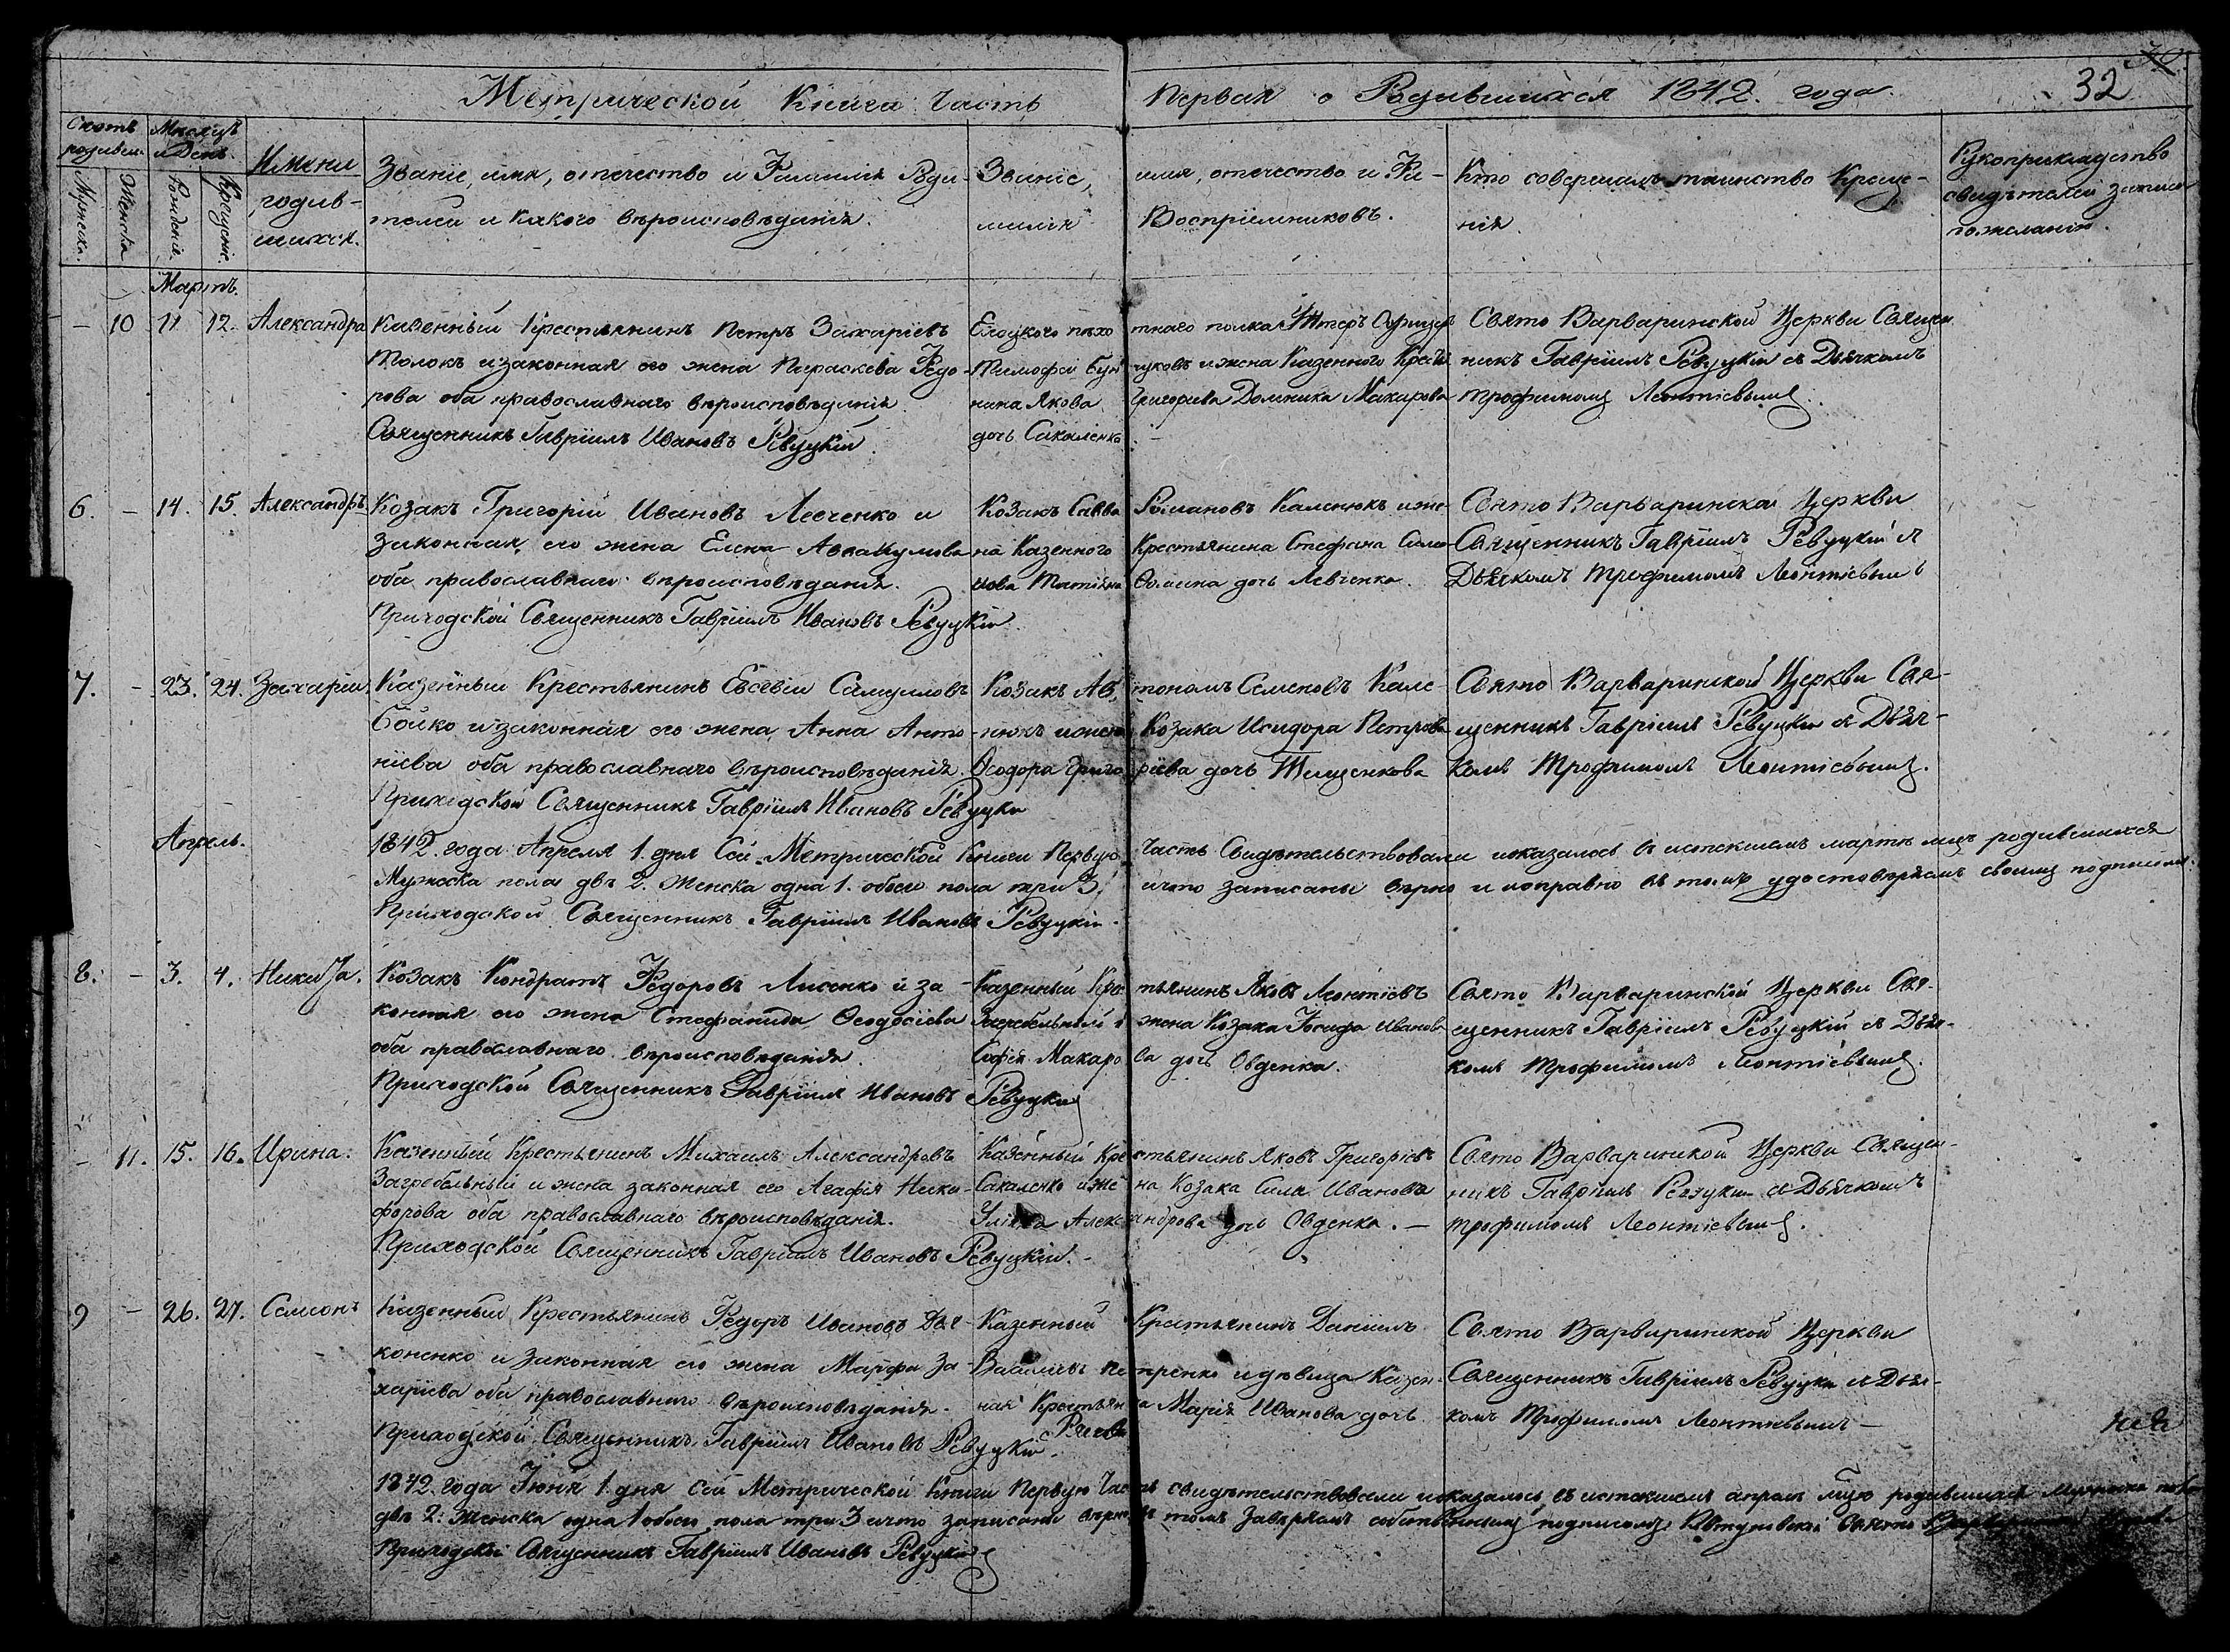 32
Метрической Книги Часть Первая о Родившихся 1842. года.
Счетъ родивш.
Мужеска.
Женска
Месяцъ и День.
Рожденіе.
Крещеніе.
Имена родив-
шихся.
Званіе, имя, отечество и Фамилія Роди-
телей и какого вѣроисповѣданія.
Званіе, имя, отечество и Фа-
милія Воспріемниковъ.
Кто совершалъ таинство Креще-
нія.
Рукоприкладство
свидѣтелей записи
по желанію.
Мартъ.
– 10 11 12. Александра
Казенный Крестьянинъ Петръ Захаріевъ
Толокъ и законная его жена Параскева Федо-
рова оба православнаго вѣроисповѣданія.
Священникъ Гавріилъ Ивановъ Ревуцкій.
Елецкого пехотнаго полка Унтеръ Офицеръ
Тимофей и жена Казенного Крестья-
нина Якова Григорьева Домника Макарова
дочь Сакаленко
Свято Варваринской Церкви Священ
никъ Гавріилъ Ревуцкій съ Дьячкомъ
Трофимомъ Леонтіевымъ.
6. – 14. 15. Александръ
Козакъ Григорій Ивановъ Левченко и
законная его жена Елена Авакумова
оба православнаго вѣроисповѣданія.
Приходской Священникъ Гавріилъ Ивановъ Ревуцкій.
Козакъ Савва Романовъ Каленюкъ и же-
на Казенного Крестьянина Стефана
Татіяна Фомина дочь Левченко.
Свято Варваринской Церкви
Священникъ Гавріилъ Ревуцкій съ
Дьячкомъ Трофимомъ Леонтіевымъ
7. – 23. 24. Захарій.
Казенный Крестьянинъ Евсевій Самуиловъ
Бойко и законная его жена Анна Анто-
ніева оба православнаго вѣроисповѣданія.
Приходской Священникъ Гавріилъ Ивановъ Ревуцкій
Козакъ Автономъ Семеновъ Кале-
нюкъ и жена Козака Исидора Петрова
Феодора Григоріева дочь Тищенкова
Свято Варваринской Церкви Свя-
щенникъ Гавріилъ Ревуцкій съ Дьяч-
комъ Трофимомъ Леонтіевымъ.
Апрель.
1842. года Апреля 1. дня Сей Метрической Книги Первую Часть Свидѣтельствовали и оказалось въ истекшемъ мартѣ мцѣ родившихся
Мужеска пола два 2. Женска одна 1. обоего пола три 3. и что записаны вѣрно и исправно въ томъ удостовѣряемъ своимъ подписомъ.
Приходской Священникъ Гавріилъ Ивановъ Ревуцкій.
8. – 3. 4. Никита.
Козакъ Кондратъ Федоровъ Лисенко и за-
конная его жена Стефанида Феодосіева
оба православнаго вѣроисповѣданія.
Приходской Священникъ Гавріилъ Ивановъ Ревуцкій
Казенный Крестьянинъ Яковъ Леонтіевъ
Загребельный и жена Козака Іосифа Иванова
Софія Макарова дочь Овденка.
Свято Варваринской Церкви Свя-
щенникъ Гавріилъ Ревуцкій съ Дьяч-
комъ Трофимомъ Леонтіевымъ.
– 11. 15. 16. Ирина.
Казенный Крестьянинъ Михаилъ Александровъ
Загребельный и жена законная его Агафія Ники-
форова оба православнаго вѣроисповѣданія.
Приходской Священникъ Гавріилъ Ивановъ Ревуцкій.
Казенный Крестьянинъ Яковъ Григоріевъ
Сакаленко и жена Козака Силы Иванова
Александрова дочь Овденка. –
Свято Варваринской Церкви Священ-
никъ Гавріилъ Ревуцкій съ Дьячкомъ
Трофимомъ Леонтіевымъ.
9 – 26. 27. Семионъ
Казенный Крестьянинъ Федоръ Ивановъ Дья-
коненко и законная его жена Марфа За-
харіева оба православнаго вѣроисповѣданія.
Приходской Священникъ Гавріилъ Ивановъ Ревуцкій.
Казенный Крестьянинъ Даніилъ
Васильевъ Петренко и дѣвица Казен-
ная Крестьянка Марія Иванова дочь
Свято Варваринской Церкви
Священникъ Гавріилъ Ревуцкій съ Дьяч-
комъ Трофимомъ Леонтіевымъ –
1842. года Іюня 1 дня Сей Метрической Книги Первую Часть свидѣтельствовали и оказалось въ истекшемъ апрелѣ мцѣ родившихся мужеска пола
два 2. Женска одна 1 обоего пола три 3 и что записаны вѣрно въ томъ завѣряемъ собственнымъ подписомъ Свято
Приходской Священникъ Гавріилъ Ивановъ Ревуцкій